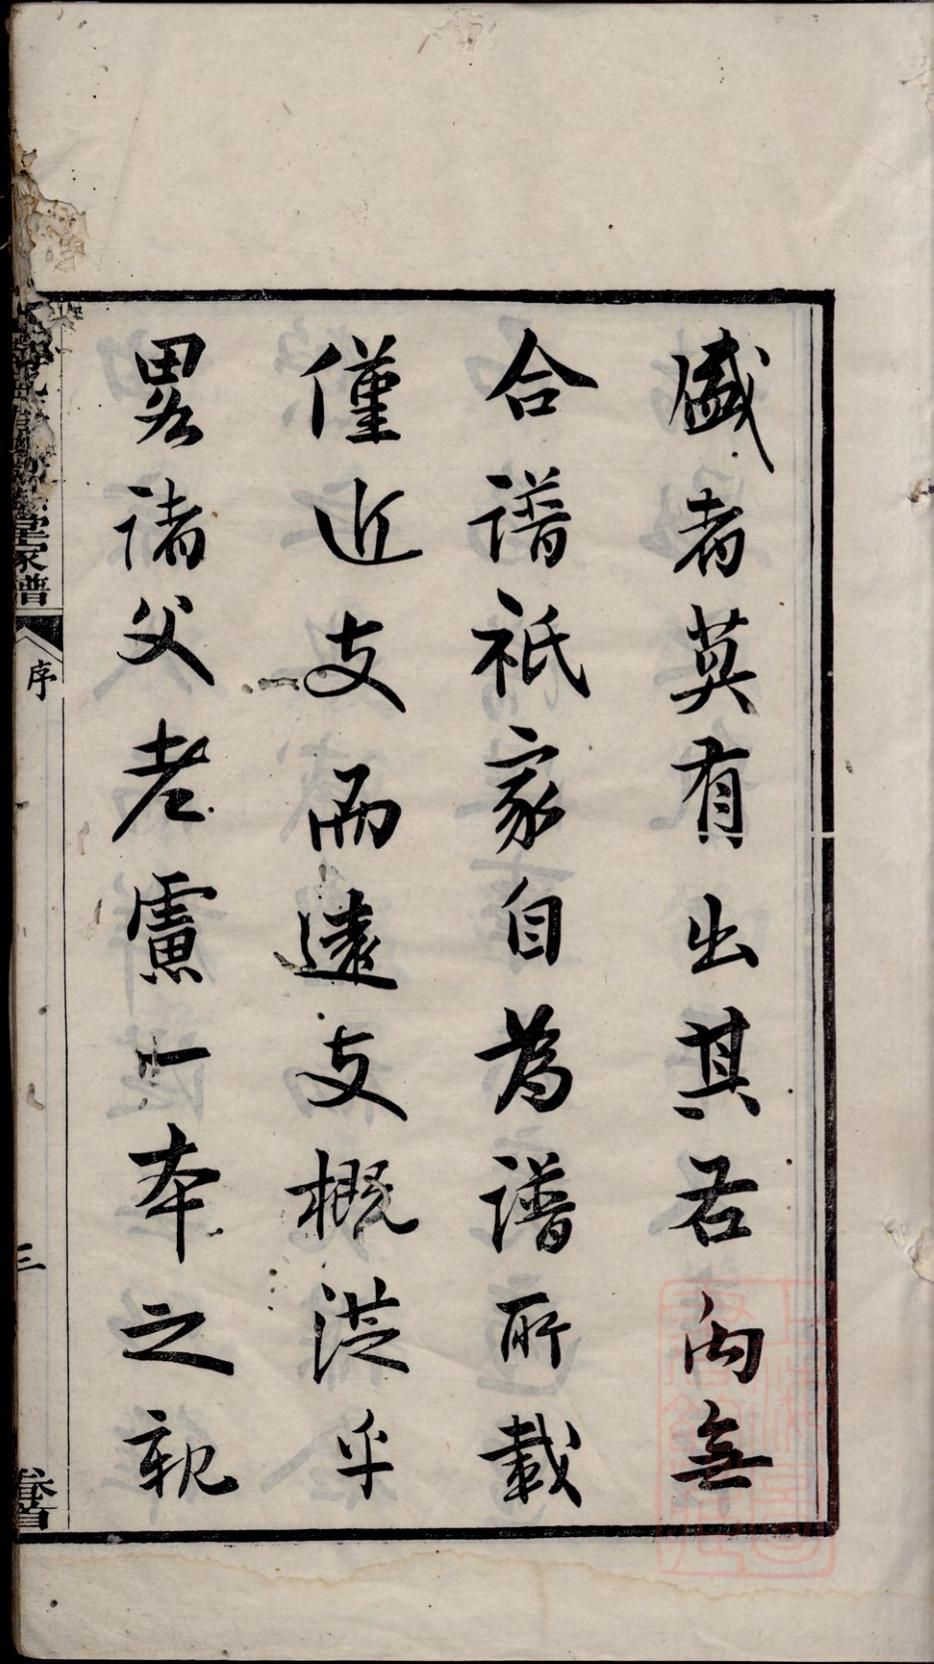 盛者莫有出其右向無
合譜祇家自為譜所載
僅近支而遠支概從乎
畧諸父老慮一本之親
堂家譜
序
三
卷首